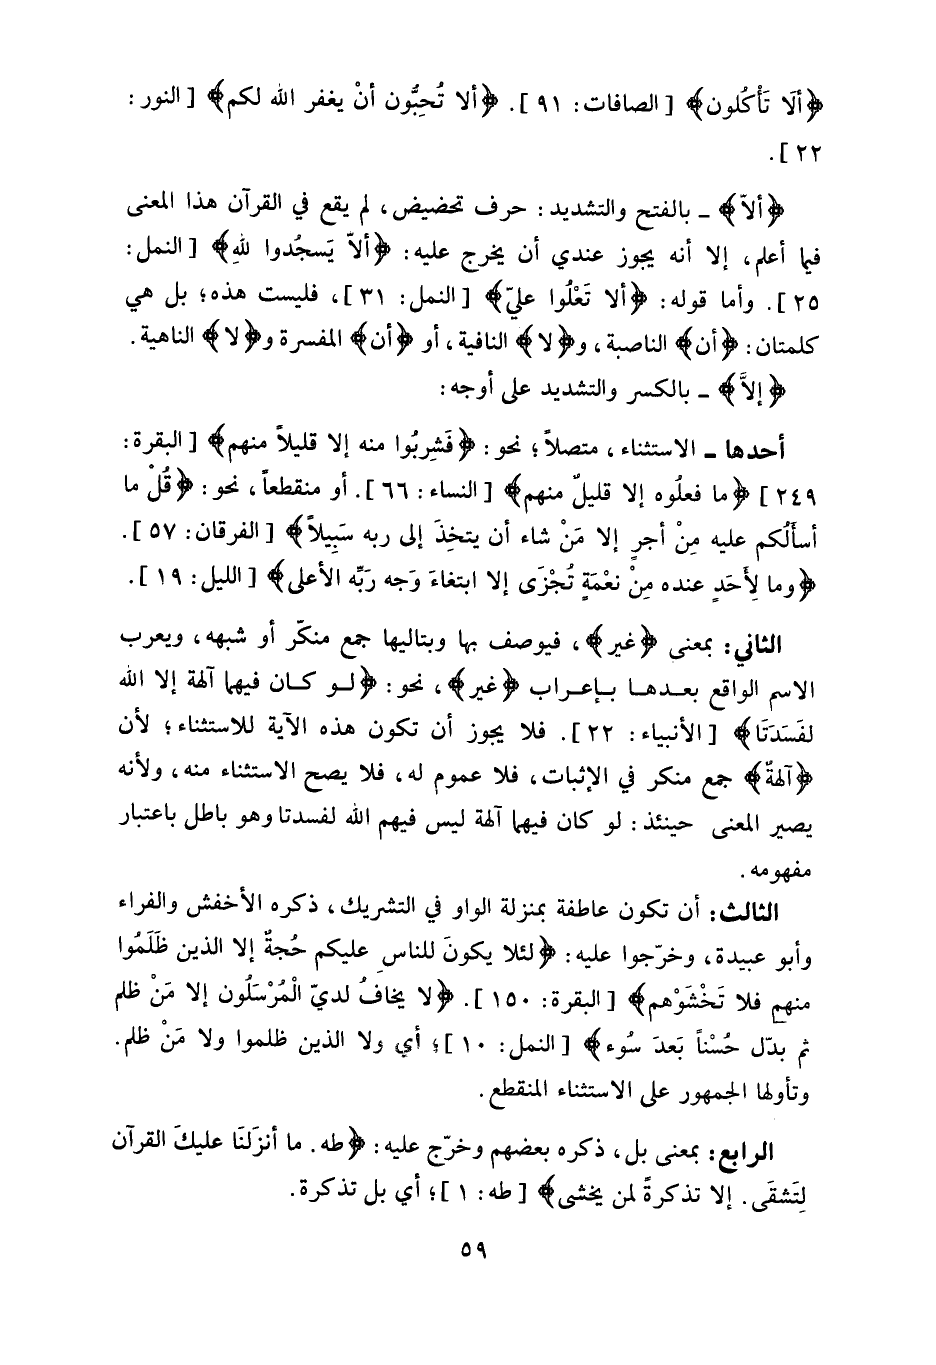 ﴿ألَا تَأْكُلون﴾ [الصافات: ٩١]. ﴿ألا تُحِبُّون أنْ يغفر الله لكم﴾ [النور:
٢٢].
﴿ألاّ﴾ ـ بالفتح والتشديد: حرف تحضيض، لم يقع في القرآن هذا المعنى
فيما أعلم، إلا أنه يجوز عندي أن يخرج عليه: ﴿ألاّ يَسجُدوا للهِ﴾ [النمل:
٢٥]. وأما قوله: ﴿ألا تَعْلُوا عليّ﴾ [النمل: ٣١]، فليست هذه؛ بل هي
كلمتان: ﴿أن﴾ الناصبة، و﴿لا﴾ النافية، أو ﴿أن﴾ المفسرة و﴿لا﴾ الناهية.
﴿إلاَّ﴾ ـ بالكسر والتشديد على أوجه:
أحدها ـ الاستثناء، متصلاً؛ نحو: ﴿فَشرِبُوا منه إلا قليلاً منهم﴾ [البقرة:
٢٤٩] ﴿ما فعلُوه إلا قليلٌ منهم﴾ [النساء: ٦٦]. أو منقطعاً، نحو: ﴿قُلْ ما
أسأَلُكم عليه مِنْ أجرٍ إلا مَنْ شاء أن يتخِذَ إلى ربه سَبِيلاً﴾ [الفرقان: ٥٧].
﴿وما لِأَحَدٍ عنده مِنْ نعْمَةٍ تُجْزَى إلا ابتغاءَ وَجه رَبِّه الأعلى﴾ [الليل: ١٩].
الثاني: بمعنى ﴿غير﴾، فيوصف بها وبتاليها جمع منكّر أو شبهه، ويعرب
الاسم الواقع بعدها بإعراب ﴿غير﴾، نحو: ﴿لو كان فيهما آلهة إلا الله
لفَسَدَتَا﴾ [الأنبياء: ٢٢]. فلا يجوز أن تكون هذه الآية للاستثناء؛ لأن
﴿آلهةٌ﴾ جمع منكر في الإثبات، فلا عموم له، فلا يصح الاستثناء منه، ولأنه
يصير المعنى حينئذ: لو كان فيهما آلهة ليس فيهم الله لفسدتا وهو باطل باعتبار
مفهومه.
الثالث: أن تكون عاطفة بمنزلة الواو في التشريك، ذكره الأخفش والفراء
وأبو عبيدة، وخرّجوا عليه: ﴿لئلا يكونَ للناسِ عليكم حُجةٌ إلا الذين ظَلَمُوا
منهم فلا تَخْشَوْهم﴾ [البقرة: ١٥٠]. ﴿لا يخافُ لديّ الْمُرْسَلُون إلا مَنْ ظلم
ثم بدّل حُسْناً بَعدَ سُوء﴾ [النمل: ١٠]؛ أي ولا الذين ظلموا ولا مَنْ ظلم.
وتأولها الجمهور على الاستثناء المنقطع.
الرابع: بمعنى بل، ذكره بعضهم وخرّج عليه: ﴿طه. ما أنزَلنَا عليكَ القرآن
لِتَشقَى. إلا تذكرةً لمن يخشى﴾ [طه: ١]؛ أي بل تذكرة.
٥٩